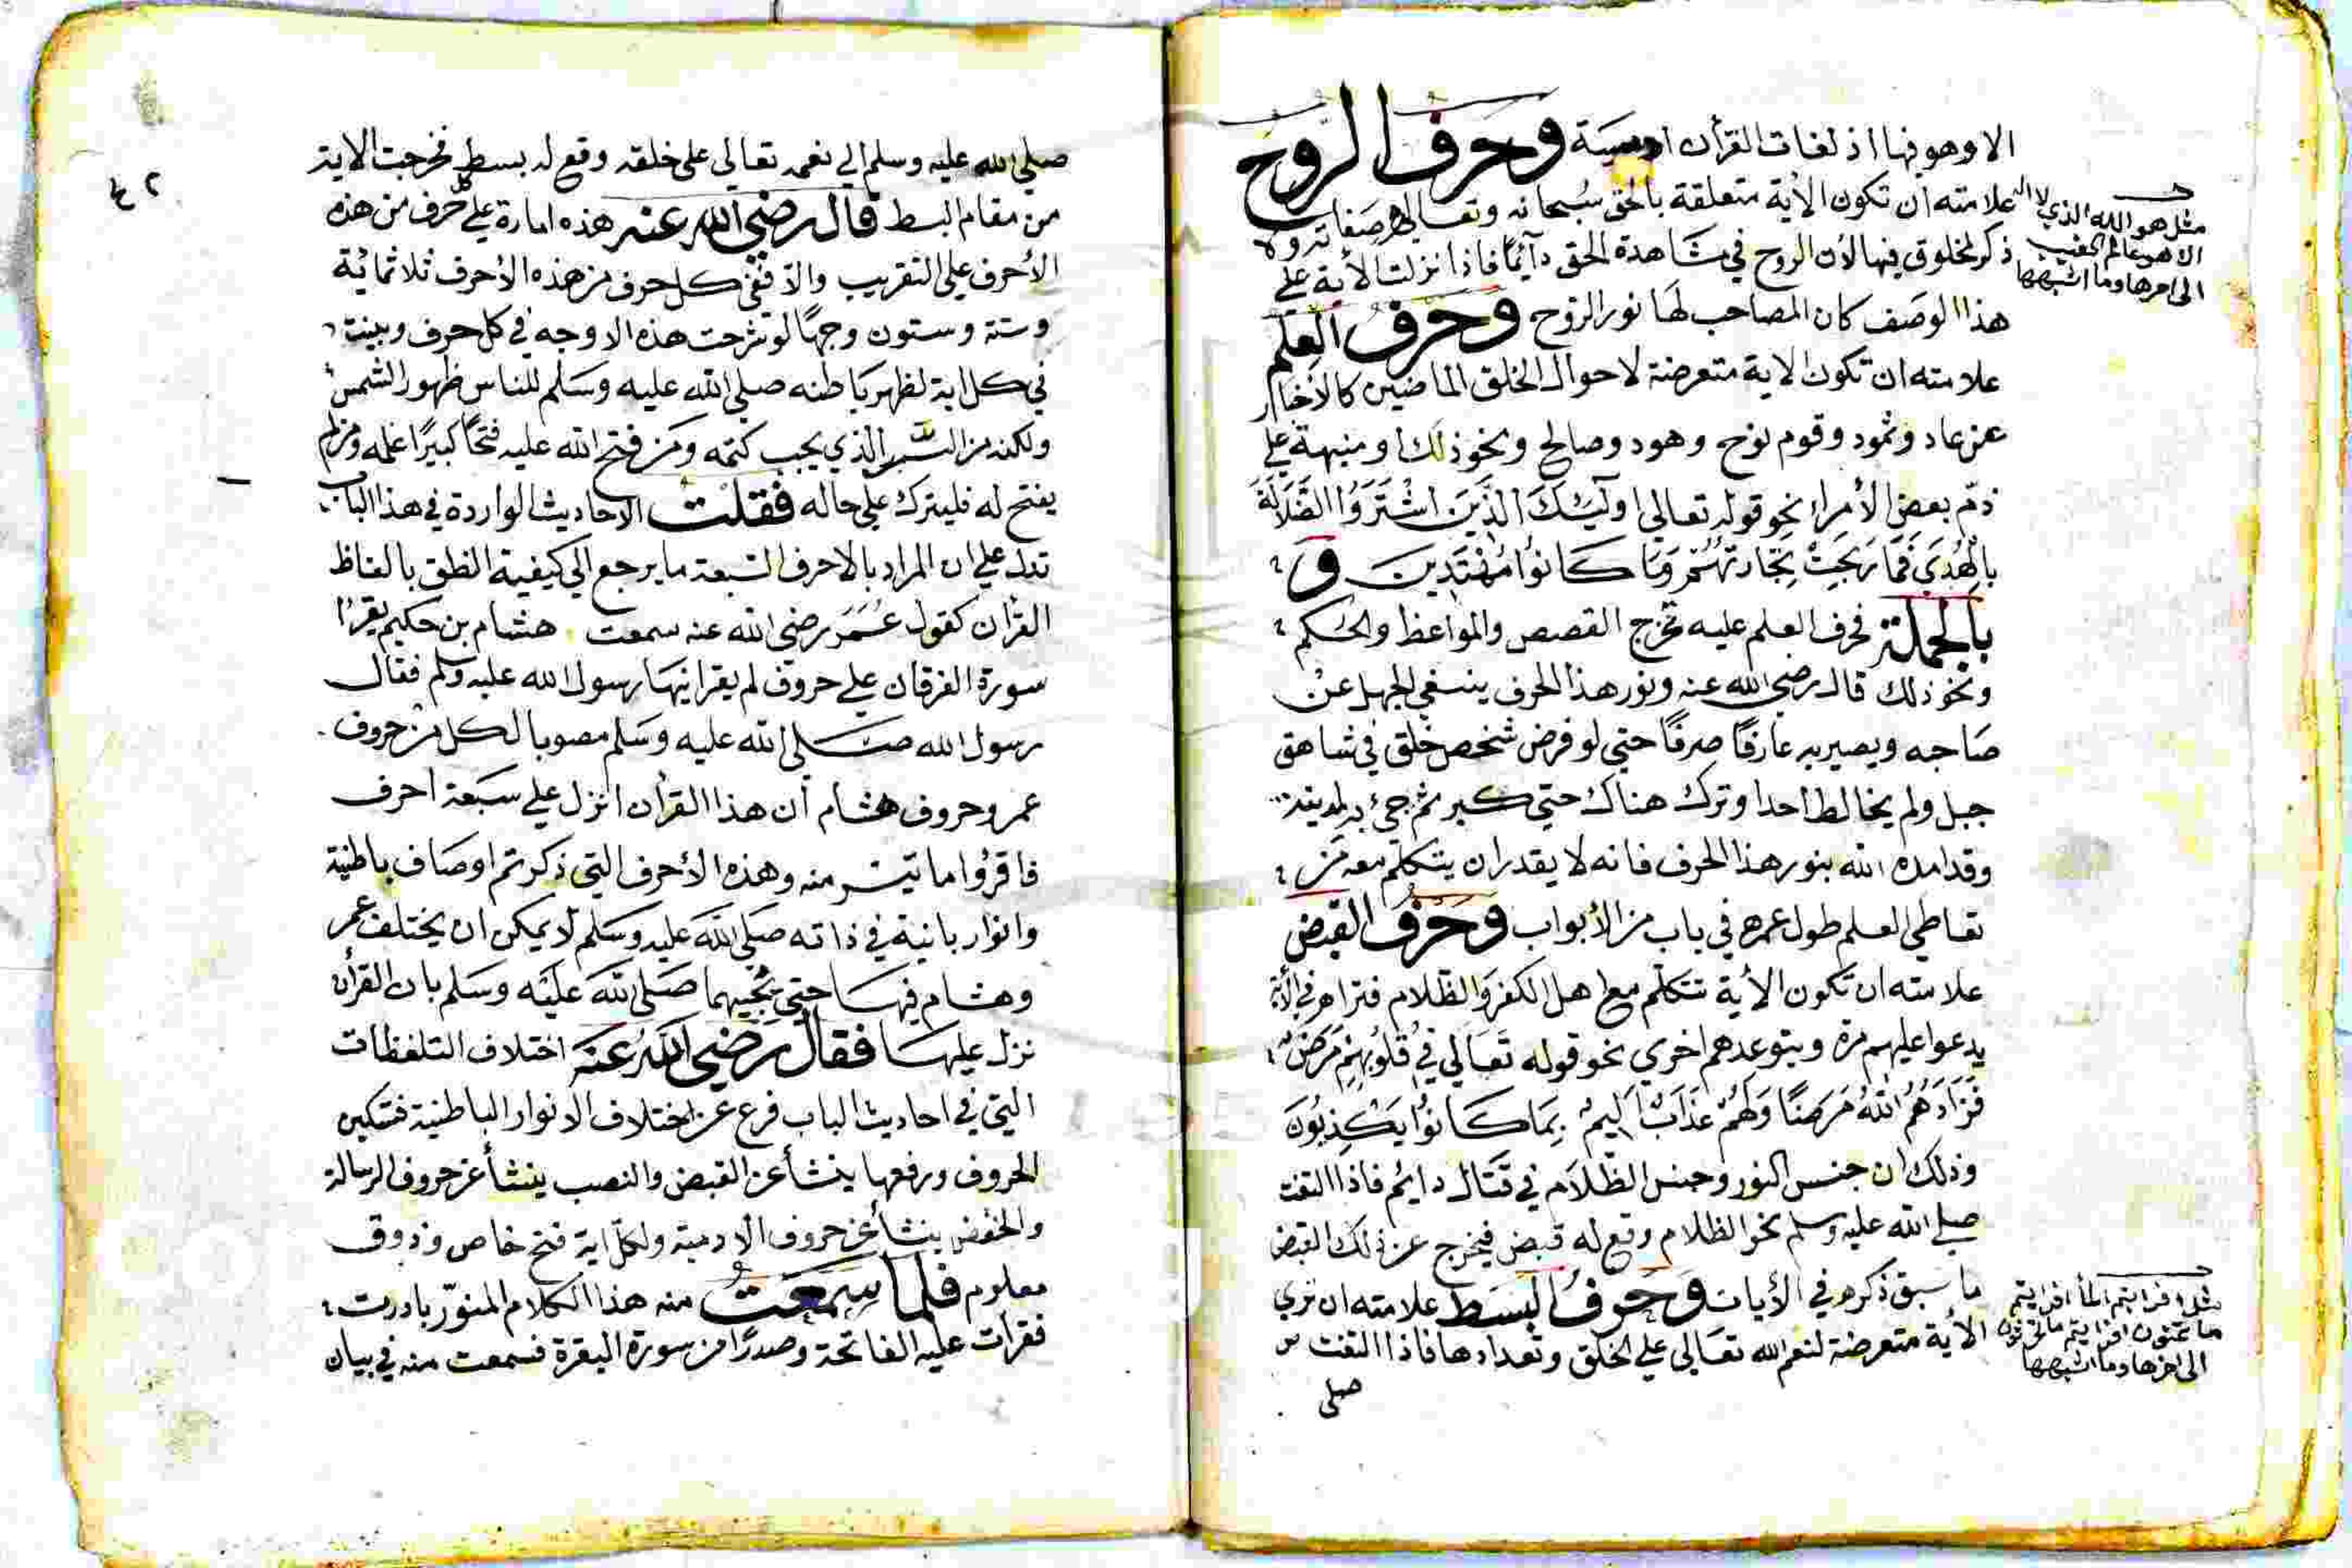 الا وهو فيها اذ لغات القرأن ادمية وحرف الروح
علامته ان تكون الأية متعلقة بالحق سبحانه وتعالى صفاته ولا
ذكر لمخلوق فيها لأن الروح في مشاهدة الحق دآئما فاذا نزلت الأية على
هذا الوصف كان المصاحب لها نور الروح وحرف العلم
علامته ان تكون الاية متعرضة لاحوال الخلق الماضين كالأخبار
عن عاد وثمود وقوم نوح وهود وصالح ونحو ذلك أو منبهة على
ذم بعض الأمراء نحو قوله تعالى اولٓئك الذين اشتروا الضلالة
بالهدى فما ربحت تجارتهم وما كانوا مهتدين و
بالجملة فحرف العلم عليه تخرج القصص والمواعظ والحكم
ونحو ذلك قال رضي الله عنه ونور هذا الحرف ينفي الجهل عن
صاحبه ويصير به عارفا صرفا حتى لو فرض شخص خلق في شاهق
جبل ولم يخالط احدا وترك هناك حتى كبر ثم جئ به لمدينة
وقد امده الله بنور هذا الحرف فانه لا يقدر ان يتكلم معه من
تعاطى العلم طول عمره في باب من الأبواب وحرف القبض
علامته ان تكون الأية تتكلم مع اهل الكفر والظلام فتراه في الأية
يدعوا عليهم مرة ويتوعدهم اخرى نحو قوله تعالى في قلوبهم مرض
فزادهم الله مرضا ولهم عذاب اليم بما كانوا يكذبون
وذلك ان جنس النور وجنس الظلام في قتال دايم فاذا التفت
صلى الله عليه وسلم نحو الظلام وقع له قبض فيخرج عن ذلك القبض
ما سبق ذكره في الأيات وحرف البسط علامته ان ترى
الأية متعرضة لنعم الله تعالى على الخلق وتعدادها فاذا التفت
صلى
مثل هو الله الذي لا اله
الا هو عالم الغيب
الى اخرها وما اشبهها
مثل افرايتم الما افرايتم
ما تمنون افرايتم ما تحرثون
الى اخرها وما اشبهها
٤٢
صلى الله عليه وسلم الى نعمه تعالى على خلقه وقع له بسط فخرجت الاية
من مقام البسط قال رضي الله عنه هذه امارة على كل حرف من هذه
الأحرف على التقريب والا ففي كل حرف من هذه الأحرف ثلاثمائة
وستة وستون وجها لو شرحت هذه الاوجه في كل حرف وبينت
في كل اية لظهر باطنه صلى الله عليه وسلم للناس ظهور الشمس
ولكنه من السر الذي يجب كتمه ومن فتح الله عليه فتحا كبيرا علمه ومن لم
يفتح له فليترك على حاله فقلت الاحاديث الواردة في هذا الباب
تدل على ان المراد بالاحرف السبعة ما يرجع الى كيفية النطق بالفاظ
القرأن كقول عمر رضي الله عنه سمعت هشام بن حكيم يقرأ
سورة الفرقان على حروف لم يقرأنيها رسول الله عليه وسلم فقال
رسول الله صلى الله عليه وسلم مصوبا لكل من حروف
عمر وحروف هشام أن هذا القرأن انزل على سبعة احرف
فاقرؤا ما تيسر منه وهذه الأحرف التي ذكرتم اوصاف باطنية
وانوار بانية في ذاته صلى الله عليه وسلم لا يمكن ان يختلف عمر
وهشام فيها حتى يجيبهما صلى الله عليه وسلم بان القرأن
نزل عليها فقال رضي الله عنه اختلاف التلفظات
التي في احاديث الباب فرع عن اختلاف الانوار الباطنية فتسكين
الحروف ورفعها ينشأ عن القبض والنصب ينشأ عن حروف الرسالة
والخفض ينشأ عن حروف الادمية ولكل اية فتح خاص وذوق
معلوم فلما سمعت منه هذا الكلام المنور بادرت
فقرات عليه الفاتحة وصدرا من سورة البقرة فسمعت منه في بيان